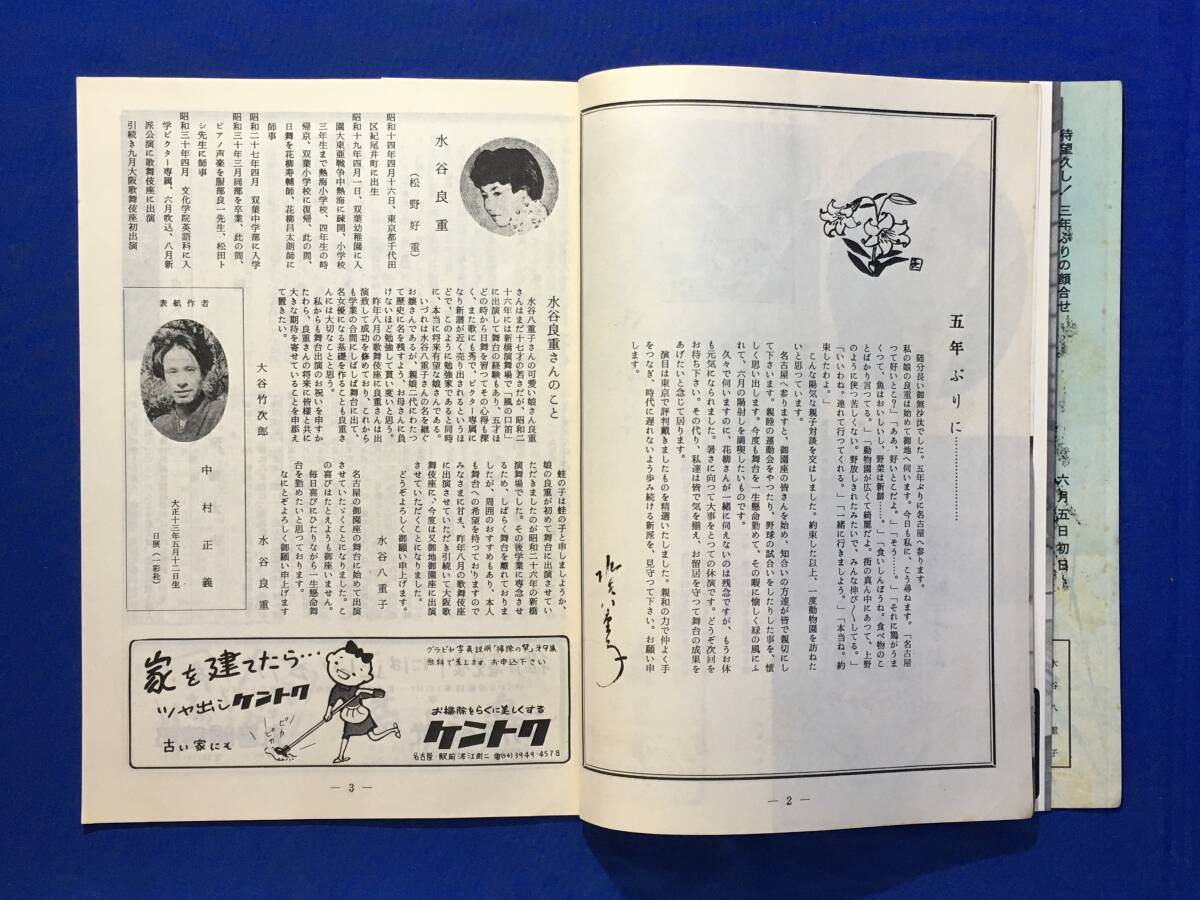 待望久し！三年ぶりの顔合せ
六月五日初日
水谷八重子
五年ぶりに…………………
随分長い御無沙汰でした。五年ぶりに名古屋へ参ります。
私の娘の良重は始めて御地へ伺います。今日も私に、こう尋ねます。「名古屋
つて好いとこ？」「ああ、好いとこだよ。」「そう……。」「それに鶏がうま
くつて、魚はおいしいし、野菜は新鮮……。」「食いしんぼうね。食べ物のこ
とばかり言つてる。」「動物園が広くて綺麗だよ。街の真ん中にあつて、上野
のように狭つ苦しくない。野放しされたみたいで、みんな伸び〱してる。」
「いいわね。連れて行つてくれる。」「一緒に行きましよう。」「本当ね。約
束したわよ。」
こんな陽気な親子対談を交はしました。約束した以上、一度動物園を訪ねた
いと思つています。
名古屋へ参りますと、御園座の皆さんを始め、知合いの方達が皆で親切にし
て下さいます。親睦の運動会をやつたり、野球の試合いをしたりした事を、懐
しく思い出します。今度も舞台を一生懸命勤めて、その暇に愉しく緑の風にふ
れて、六月の陽射しを満喫したいものです。
久々で伺いますのに、花柳さんが一緒に伺えないのは残念ですが、もうお体
も元気になられました。暑さに向つて大事をとつての休演です。どうぞ次回を
お待ち下さい。その代り、私達は皆で気を揃え、お留居を守つて舞台の成果を
あげたいと念じて居ります。
演目は東京で評判戴きましたものを精選いたしました。親和の力で仲よく手
をつなぎ、時代に遅れないよう歩み続ける新派を、見守つて下さい。お願い申
します。
水谷八重子
— 2 —
水谷良重
（松野好重）
昭和十四年四月十六日、東京都千代田
区紀尾井町に出生
昭和十九年四月一日、双葉幼稚園に入
園大東亜戦争中熱海に疎開、小学校
三年生まで熱海小学校、四年生の時
帰京、双葉小学校に復帰、此の間、
日舞を花柳寿輔師、花柳昌太朗師に
師事
昭和二十七年四月 双葉中学部に入学
昭和三十年三月同部を卒業、此の間、
ピアノ声楽を服部良一先生、松田ト
シ先生に師事
昭和三十年四月 文化学院英語科に入
学ビクター専属、六月吹込、八月新
派公演に歌舞伎座に出演
引続き九月大阪歌舞伎座初出演
水谷良重さんのこと
水谷八重子さんの可愛い娘さん良重
さんはまだ十七才の若さだが、昭和二
十六年には新橋演舞場で「風の口笛」
に出演して舞台の経験もあり、五才ほ
どの時から日舞を習つてその心得も深
く、また歌にも秀で、ビクター専属に
なり新譜が近く売り出されるというほ
どで、このように勉強家であると同時
に、本当に将来有望な娘さんである。
いづれは水谷八重子さんの名を継ぐ
お嬢さんであるが、親娘二代にわたつ
て歴史に名を残すよう、お母さんに負
けないほど勉強して貰い度いと思う。
昨年八月の歌舞伎座に良重さんは出
演致して成功を修めており、これから
も学業の合間にしばしば舞台に出て、
名女優になる基礎を作ることも良重さ
んには大切なことと思う。
私からも舞台出演のお祝いを申すか
たわら、良重さんの将来に皆様と共に
大きな期待を寄せていることを申添え
て置きたい。
大谷竹次郎
蛙の子は蛙の子と申しましようか、
娘の良重が初めて舞台に出演させてい
ただきましたのが昭和二十六年の新橋
演舞場でした。その後学業に専念させ
るため、しばらく舞台を離れておりま
したが、周囲のおすすめもあり、本人
も舞台への希望を持つておりますので
みなさまに甘え、昨年八月の歌舞伎座
に出演させていただき引続いて大阪歌
舞伎座に、今度は又御地御園座に出演
させていただくことになりました。
どうぞよろしく御願い申上げます。
水谷八重子
名古屋の御園座の舞台に始めて出演
させていたゞくことになりました。こ
の喜びはたとえようも御座いません。
毎日喜びにひたりながら一生懸命舞
台を勤めたいと思つております。
なにとぞよろしく御願い申上げます
水谷良重
表紙作者
中村正義
大正十三年五月十二日生
日展（一彩社）
家を建てたら…
ツヤ出しケントク
古い家にも
ピカピカ
グラビヤ写真説明「掃除の栞」オ9集
無料で差上ます．お申込下さい
お掃除をらくに美しくする
ケントク
名古屋・駅前 泥江町二 電(54)3949・4578
— 3 —